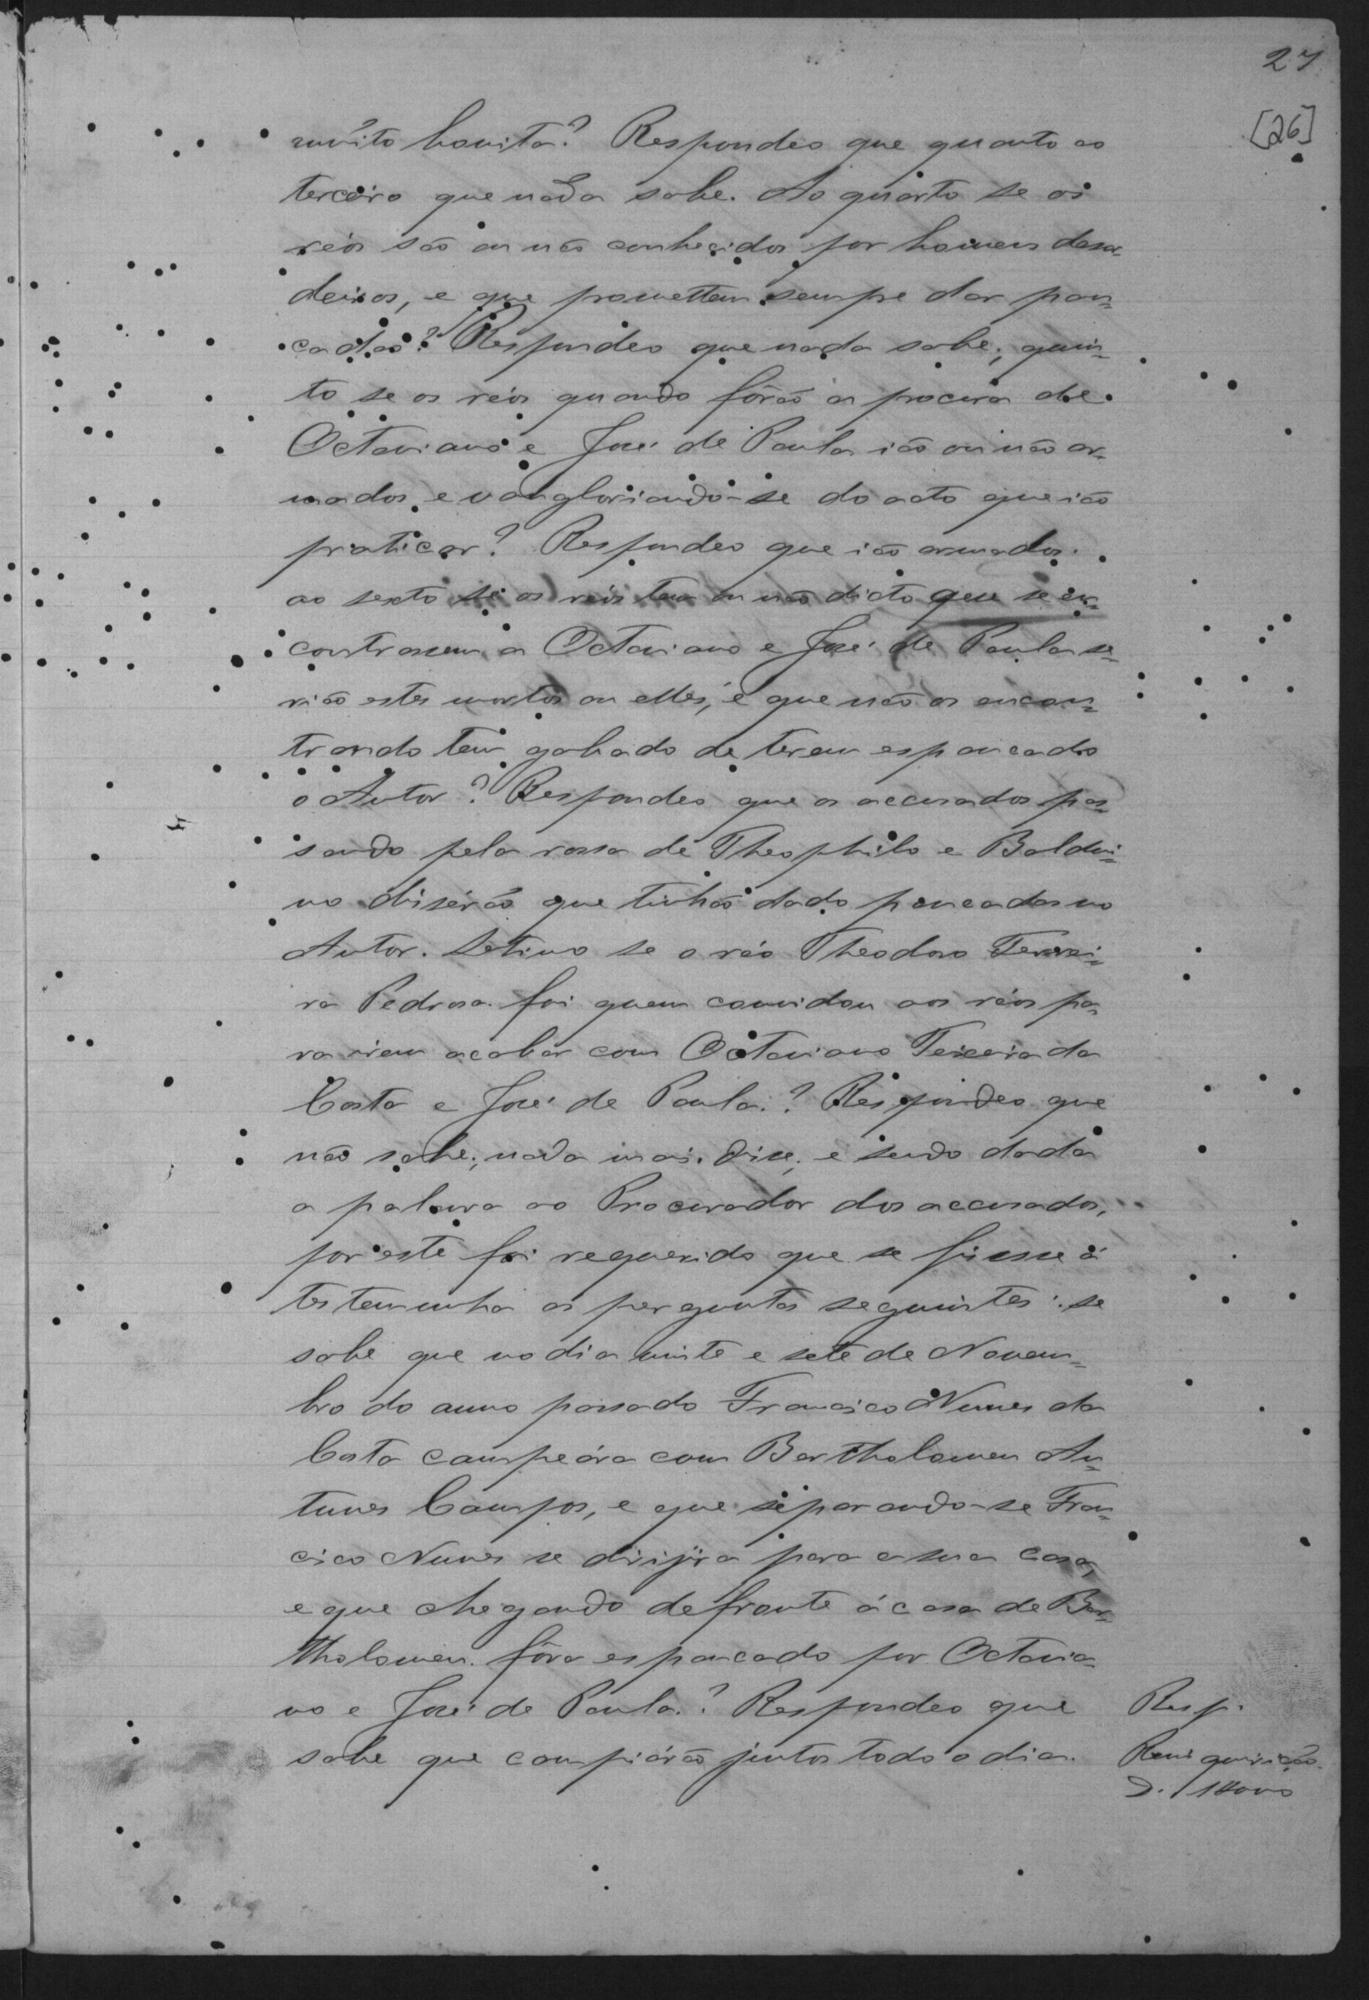 27
[26]
muito bonita? Respondeo que quanto ao
terceiro que nada sabe. Ao quarto se os
réos são ou não conhecidos por homens desor
deiros, e que promettem sempre dar pan-
cadas? Respondeo que nada sabe; quin-
to se os réos quando fôrão a procura de
Octaviano e José de Paula ião ou não ar-
mados, e vangloriando-se do acto que ião
praticar? Respondeo que ião armados.
ao sexto se os réos tem ou não dicto que se en-
contrassem a Octaviano e José de Paula se-
rião estes mortos ou elles, e que não os encon-
trando tem gabado de terem espancado
o Autor? Respondeo que os accusados pas-
sando pela rossa de Theophilo e Baldui-
no disérão que tinhão dado pancadas no
Autor. Setimo se o réo Theodoro Ferrei-
ra Pedrosa foi quem convidou aos réos pa-
ra irem acabar com Octaviano Teixeira da
Costa e José de Paula? Respondeo que
não sabe; nada mais disse; e sendo dada
a palavra ao Procurador dos accusados,
por este foi requerido que se fizesse á
testemunha as perguntas seguintes: se
sabe que no dia vinte e sete de Novem-
bro do anno passado Francisco Nunes da
Costa campeára com Bartholomeu An-
tunes Campos, e que separando-se Fran-
cisco Nunes se dirijira para a sua casa,
e que chegando defronte á casa de Bar-
tholomeu fôra espancado por Octavia-
no e José de Paula? Respondeo que
sabe que campiárão juntos todo o dia.
Resp.